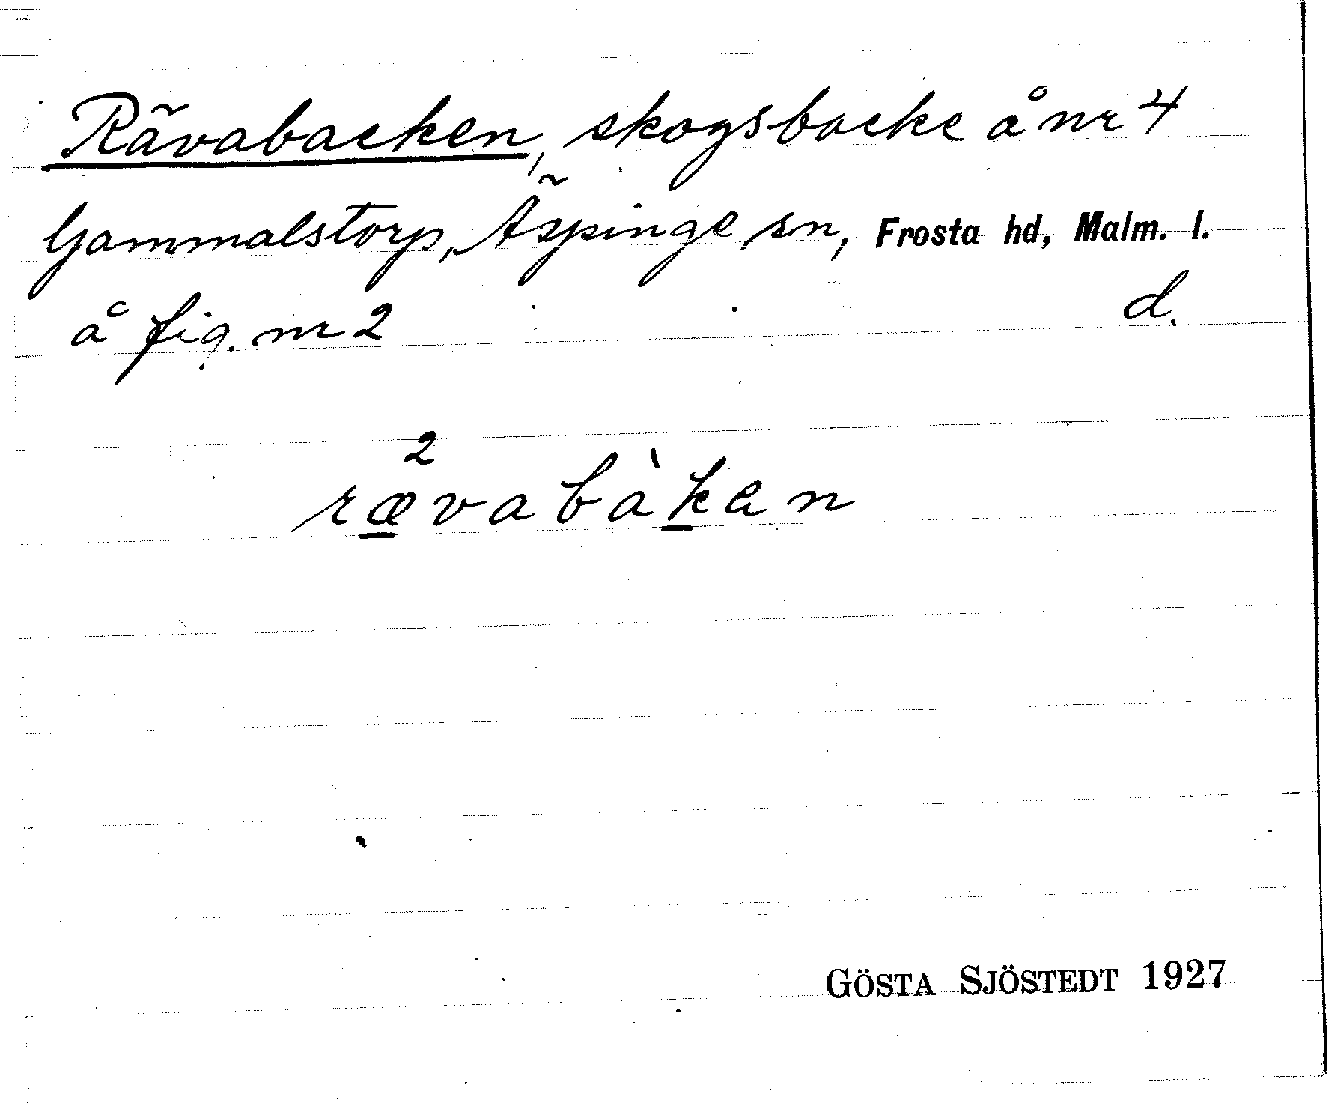 Rävabacken, skogsbacke å nr 4
Gammalstorp, Äspinge sn, Frosta hd, Malm. l.
å fig. nr 2 d.
2
rævabàken
GÖSTA SJÖSTEDT 1927